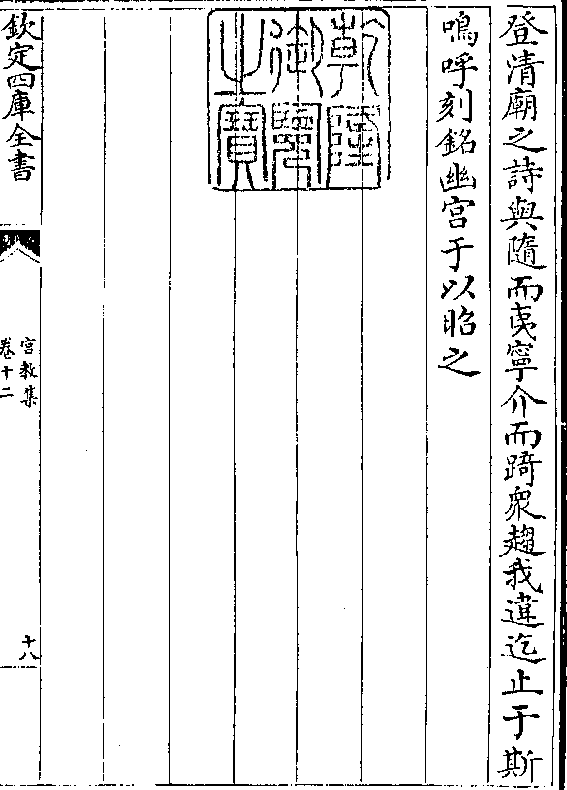 登清廟之詩與隨而夷寧介而踦衆趨我違迄止于斯
嗚呼刻銘幽宮于以昭之
乾隆御覽之寶
欽定四庫全書
宮教集
卷十二
十八